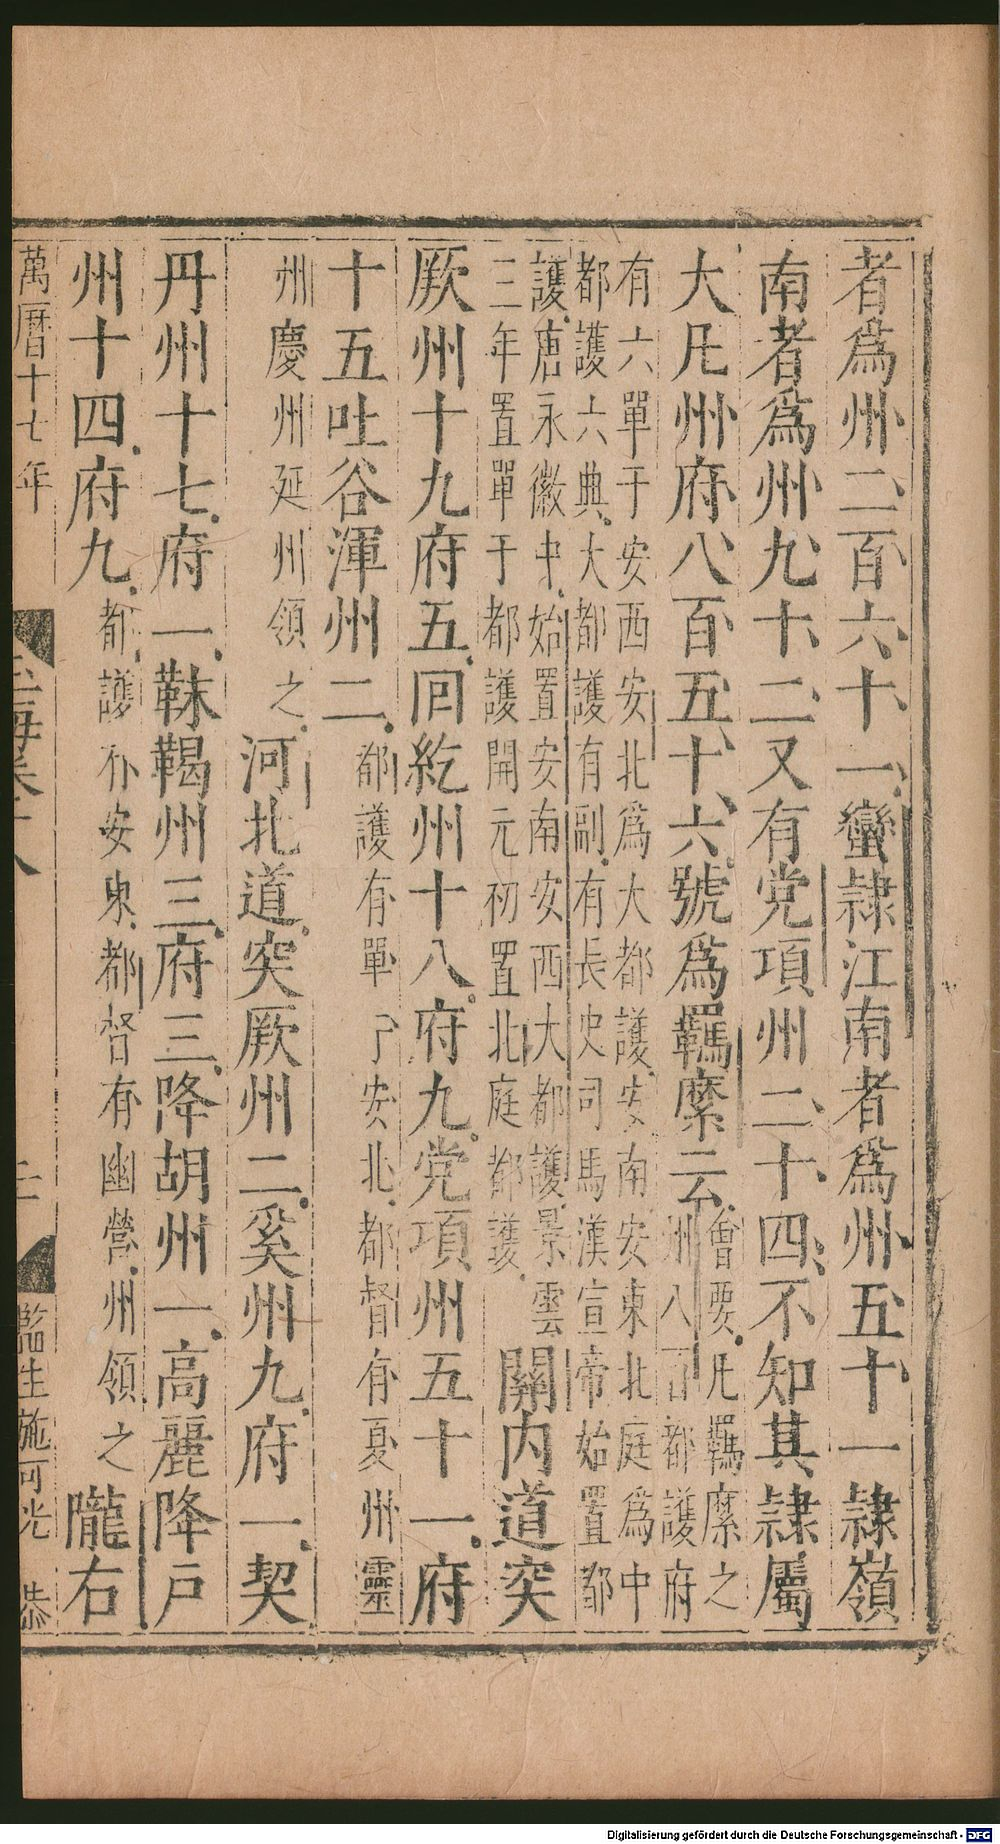 者爲州二百六十一蠻隷江南者爲州五十一隷嶺
南者爲州九十二又有党項州二十四不知其隷屬
大凡州府八百五十六號爲羈縻云會要凡羈縻之
州八百都護府
有六單于安西安北爲大都護安南安東北庭爲中
都護六典大都護有副有長史司馬漢宣帝始置都
護唐永徽中始置安南安西大都護景雲
三年置單于都護開元初置北庭都護關内道突
厥州十九府五回紇州十八府九党項州五十一府
十五吐谷渾州二都護有單于安北都督有夏州靈
州慶州延州領之河北道突厥州二奚州九府一契
丹州十七府一靺鞨州三府三降胡州一高麗降戸
州十四府九都護有安東都督有幽營州領之隴右
萬曆十七年
玉海卷十八
監生施可光
恭
Digitalisierung gefördert durch die Deutsche Forschungsgemeinschaft - DFG